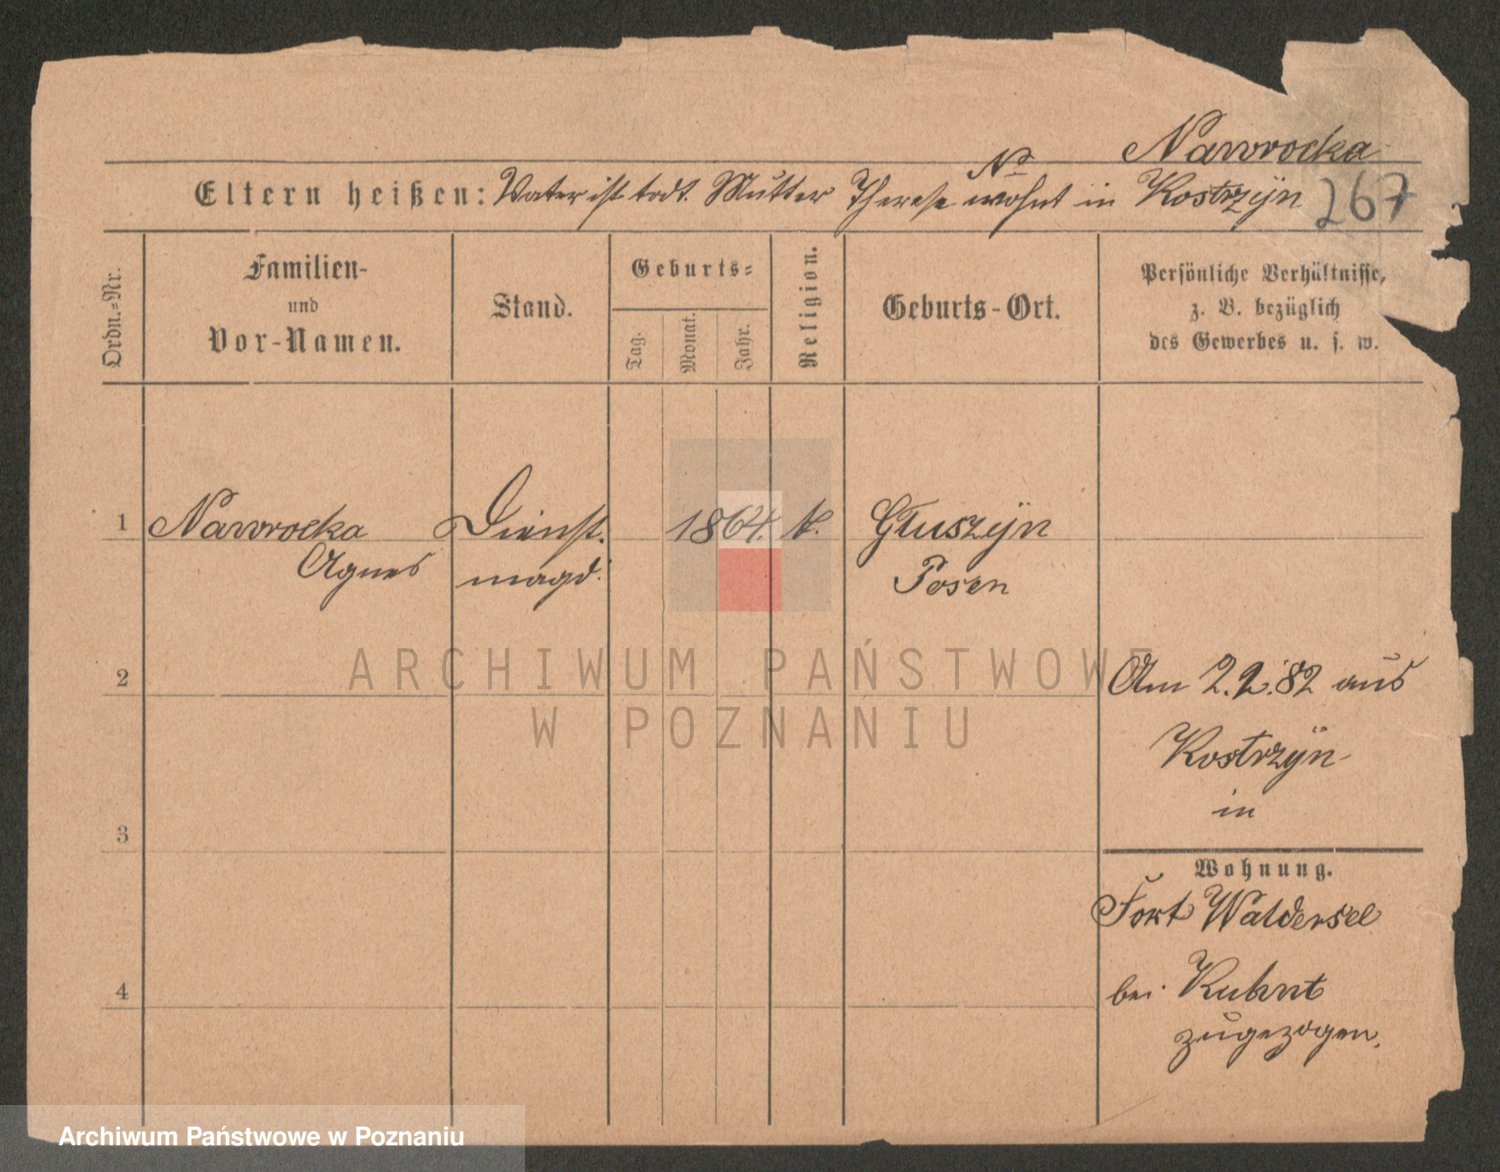 Nawrocka
N
Eltern heißen: Vater ist todt. Mutter Therese wohnt in Kostrzÿn
267
Ordn.-Nr.
Familien-
und
Vor-Namen.
Stand.
Geburts-
Tag.
Monat.
Jahr.
Religion.
Geburts-Ort.
Persönliche Verhältnisse,
z. B. bezüglich
des Gewerbes u. s. w.
1 Nawrocka Dienst- 1864. k. Głuszÿn
Agnes magd. Posen
2
Am 2.2.82 aus
Kostrzÿn
in
3
Wohnung.
Fort Waldersel
4
bei Kuhnt
zugezogen.
ARCHIWUM PAŃSTWOWE
W POZNANIU
Archiwum Państwowe w Poznaniu